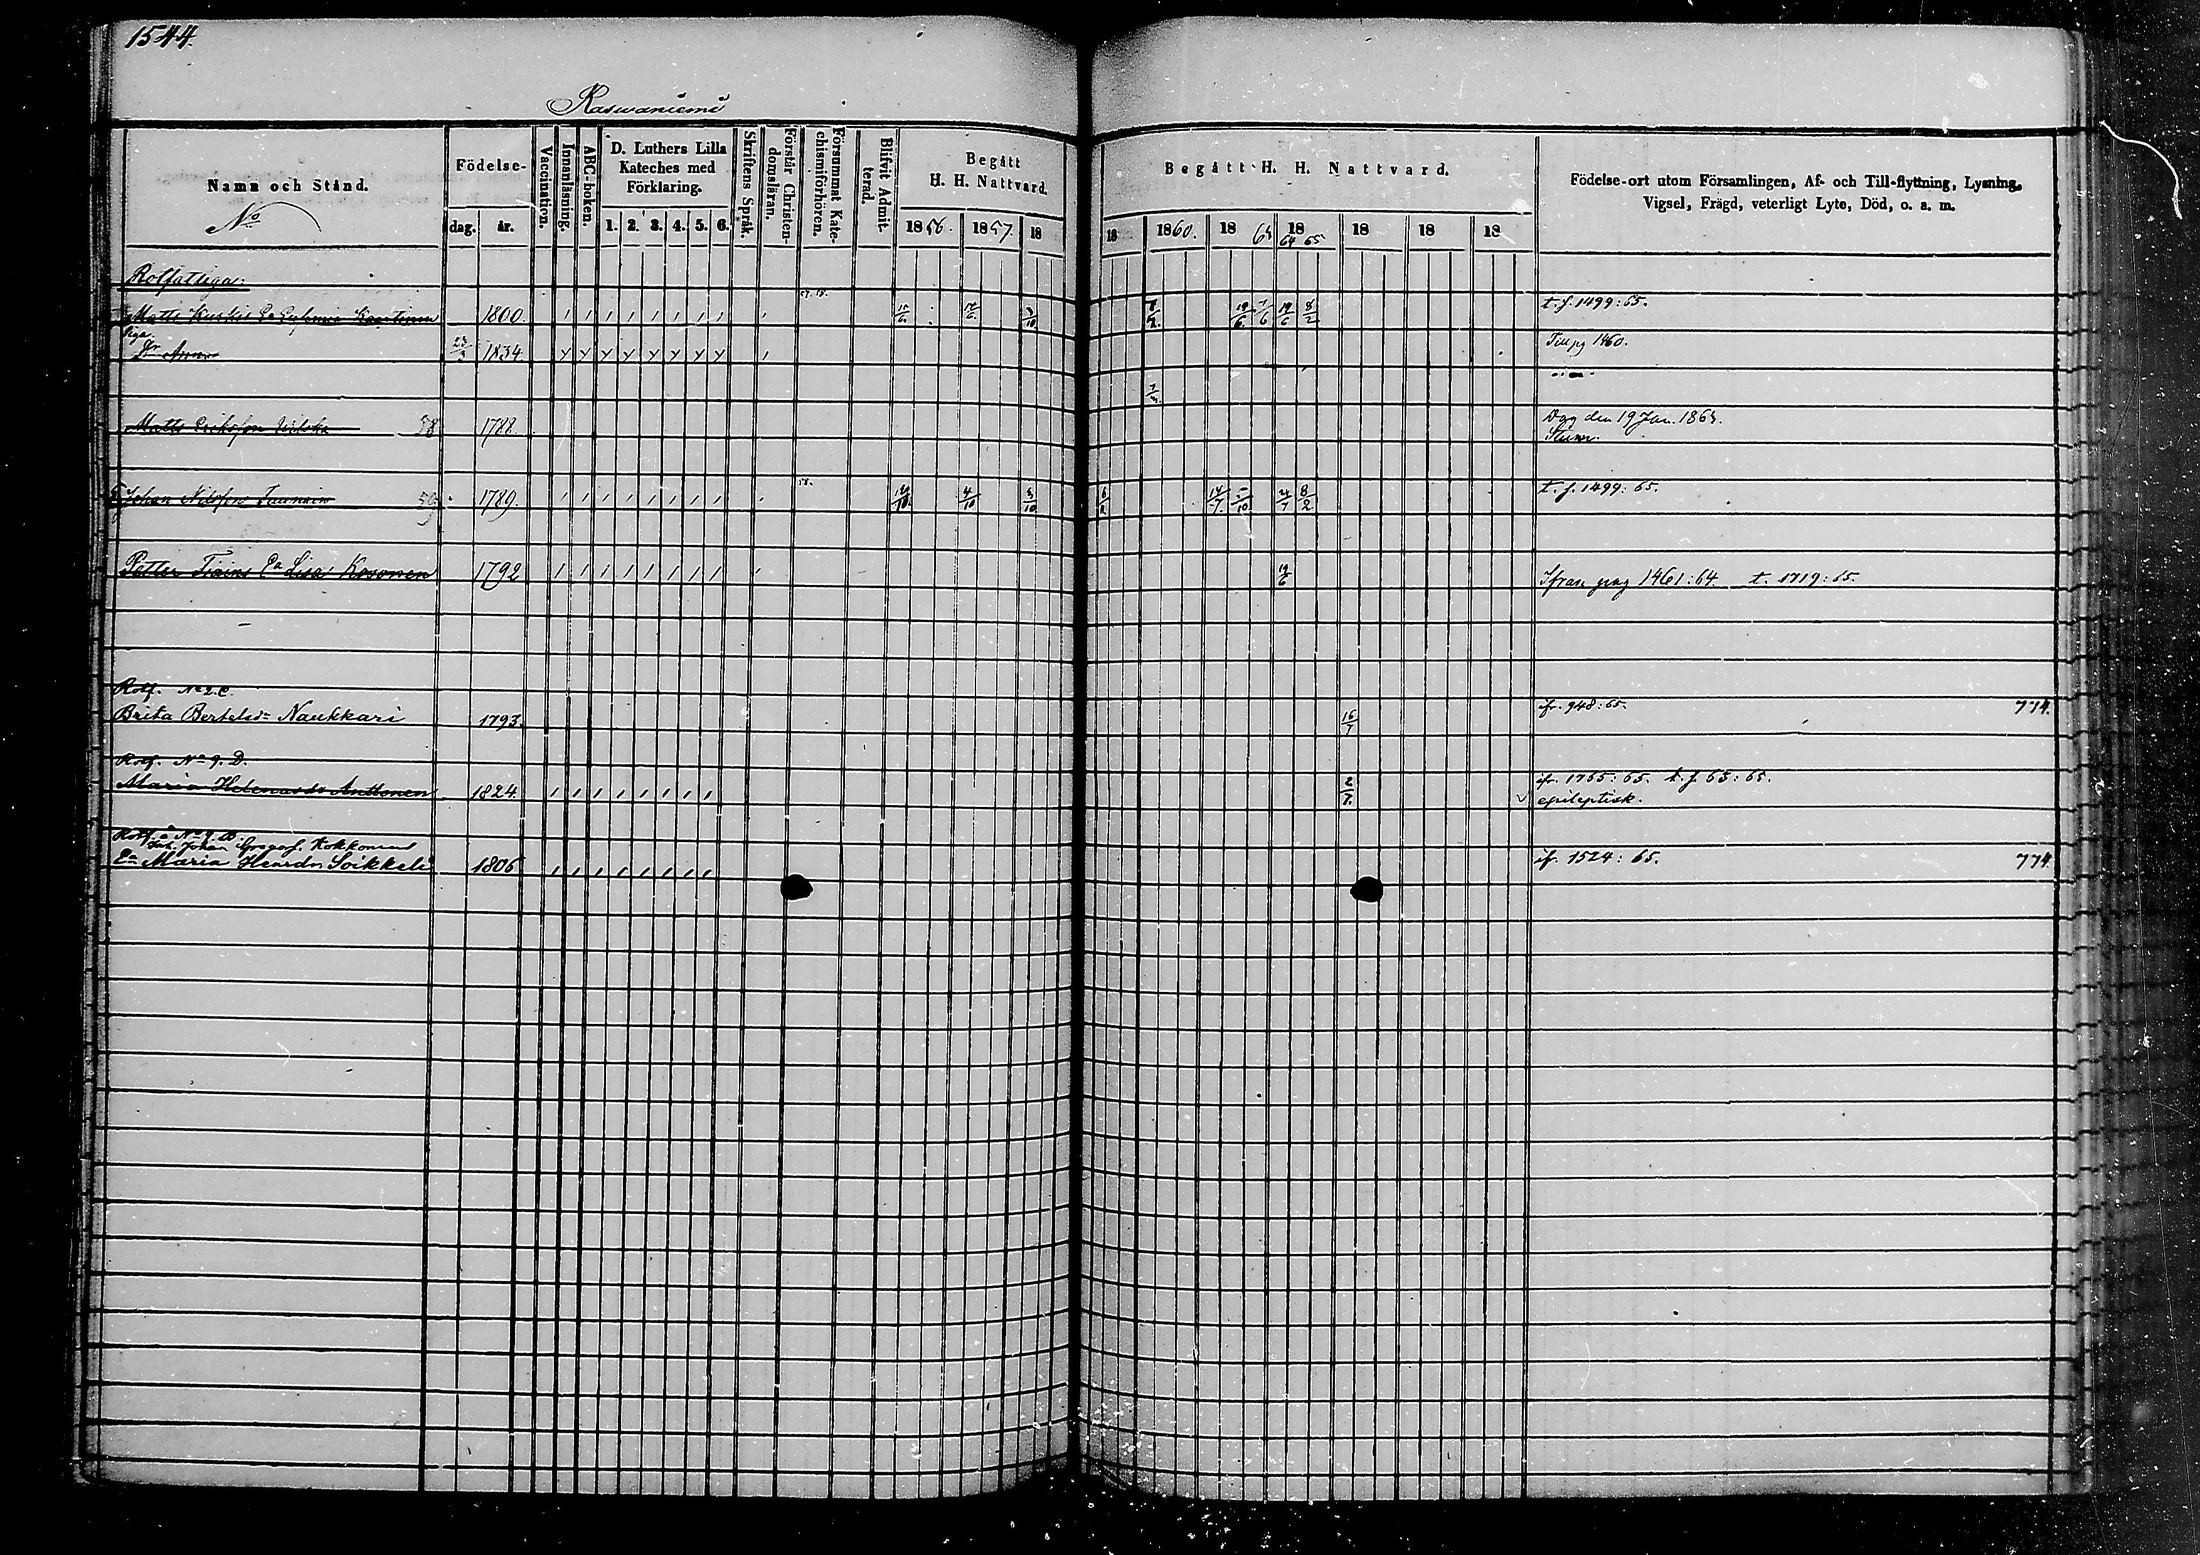 1544.
Kaswaniemi
Namn och Stånd.
No
Födelse-
dag. år.
Vaccination.
Innanläsning.
ABC-boken.
D. Luthers Lilla Kateches med Förklaring.
1. 2. 3. 4. 5. 6.
Skriftens Språk.
Förstår Christendomsläran.
Försummat Katechismiförhören.
Blifvit Admitterad.
Begått H. H. Nattvard.
1856. 1857. 18
Begått H. H. Nattvard.
18 1860. 18 63 18 64 65 18 18 18
Födelse-ort utom Församlingen, Af- och Till-flyttning, Lysning, Vigsel, Frägd, veterligt Lyte, Död, o. s. m.
Rotfattiga:
Matts 1800. 57. 58. t. f. 1499: 65.
Piga
Dr Anna 23/3 1834. Till pg 1460.
7/
Matts Eriksson 58 1788. Dog den 19 Jan. 1863.
Stum.
Johan Nilsson 59 1789. 58. t. f. 1499: 65.
Petter Tiainen Ea Lisa Kosonen 1792 19/6 Ifrån pag 1461: 64. t. 1719: 65.
Rotf. No 2. C.
Brita Bertelsdr Naukkari 1793. 16/7 ifr. 948: 65. 774.
Rotf. No 9. D.
Maria Helenasdr Anttonen 1824. 2/7. ifr. 1765: 65. t. f. 65: 65.
epileptisk.
Rotf. å No 9. B.
Inh. Johan Gregorf. Kokkonens
Ea Maria Henrdr. Soikkeli 1806 ifr. 1524: 65. 774.